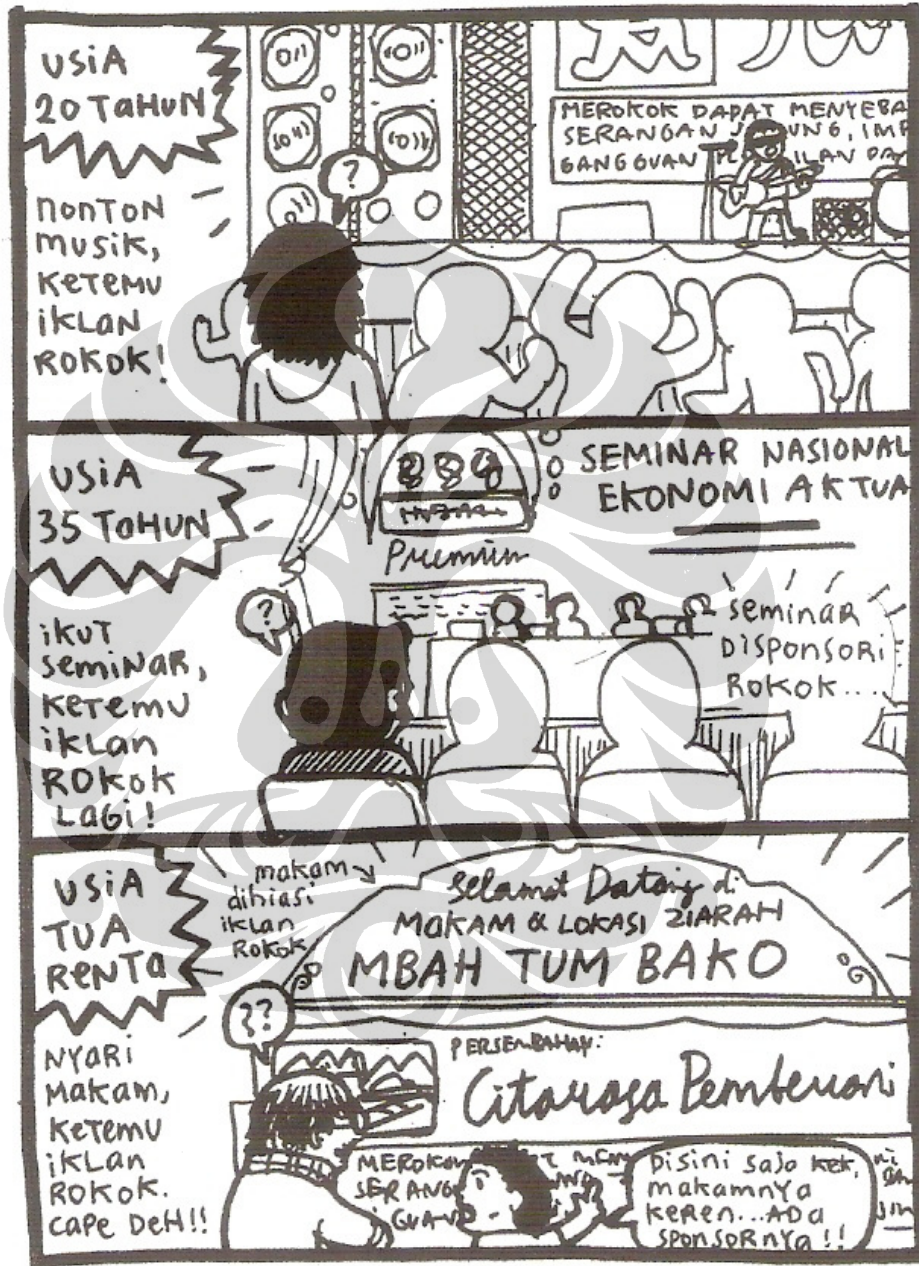 USIA
20 TAHUN
NONTON
MUSIK,
KETEMU
IKLAN
ROKOK!
?
MEROKOK DAPAT MENYEBA
SERANGAN
GANGGUAN
USIA
35 TAHUN
IKUT
SEMINAR,
KETEMU
IKLAN
ROKOK
LAGI!
?
Premium
SEMINAR NASIONAL
EKONOMI AKTUA
Seminar
DISPONSORI
ROKOK...
USIA
TUA
RENTA
NYARI
MAKAM,
KETEMU
IKLAN
ROKOK.
CAPE DEH!!
makam
dihiasi
iklan
ROKOK
??
Selamat Datang di
MAKAM & LOKASI ZIARAH
MBAH TUM BAKO
PERSEMBAHAN:
Citarasa Pemberani
Disini saja kek,
makamnya
keren...ADA
SPONSORnya!!